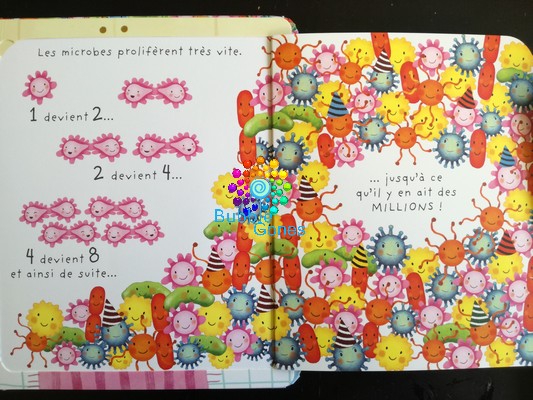 Les microbes prolifèrent très vite.
1 devient 2...
2 devient 4...
4 devient 8
et ainsi de suite...
... jusqu'à ce
qu'il y en ait des
MILLIONS !
Gones